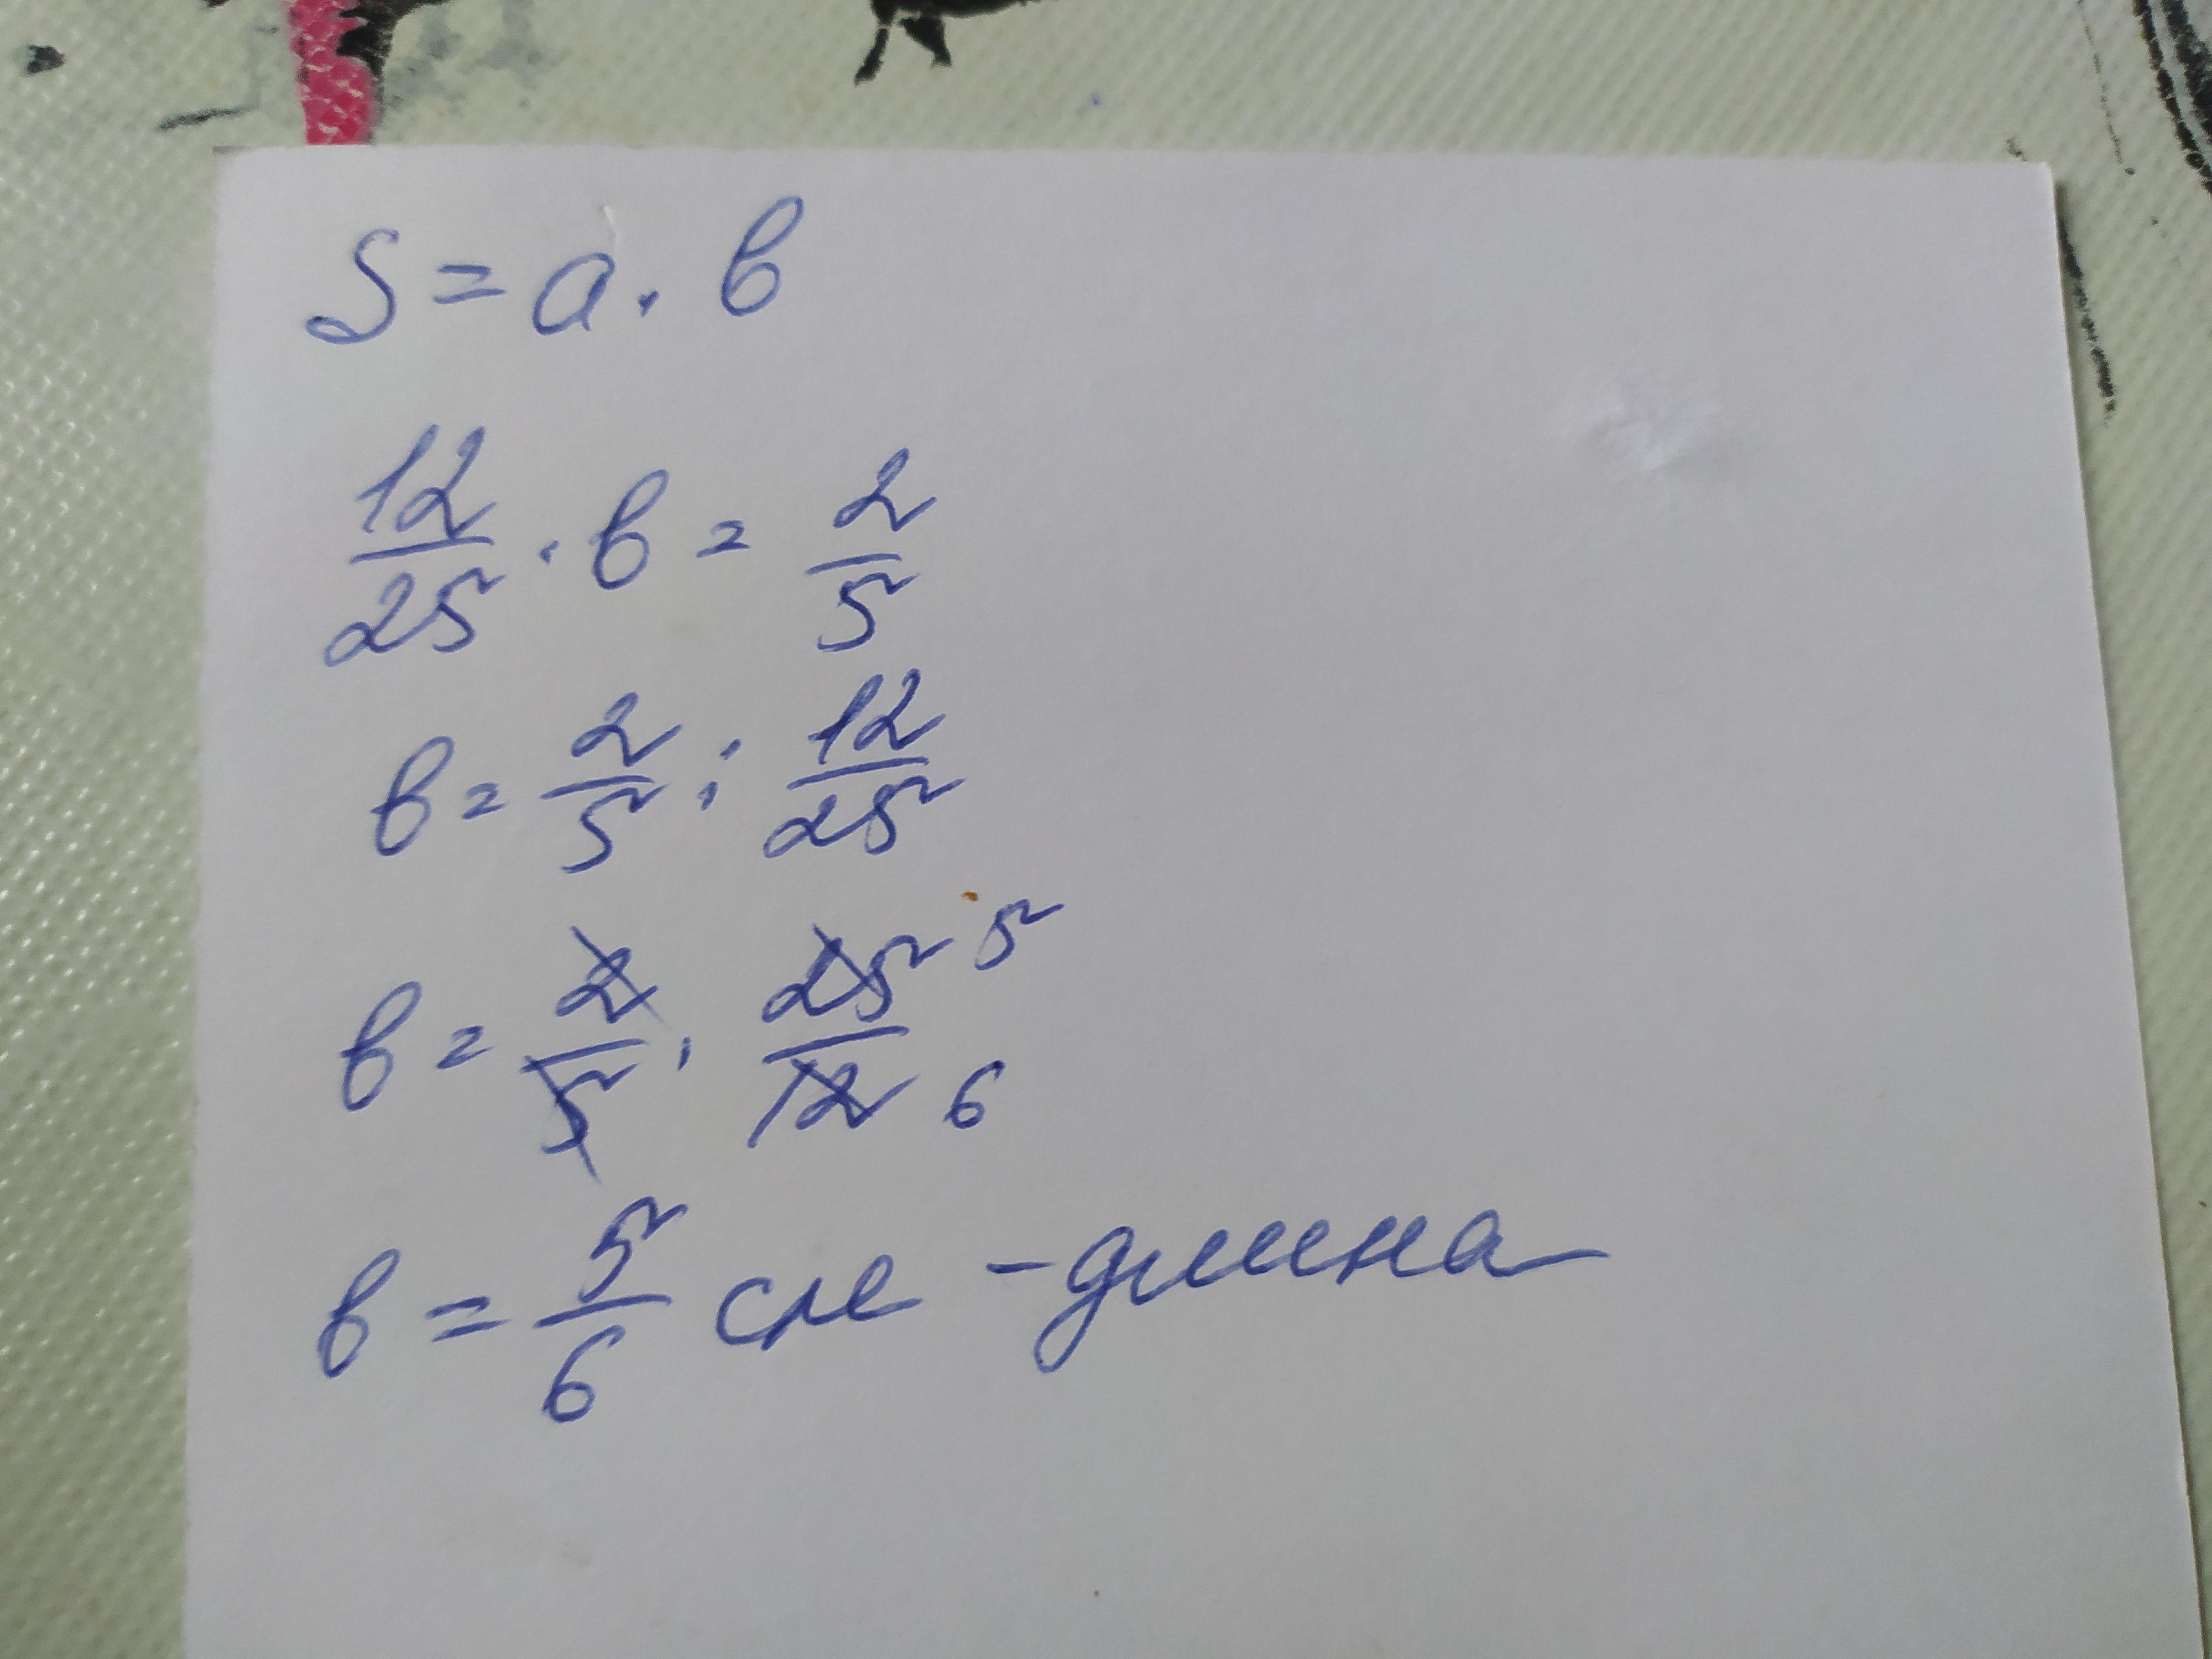 S = a · в
12/25 · в = 2/5
в = 2/5 : 12/25
в = 2/5 · 25/12 5 6
в = 5/6 см - длина